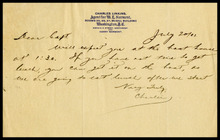 CHARLES LINKINS,
Agent for W. E. Burnett,
Washington, D.C.
July 20th,
Dear Capt
Will expect you at the boat house
at 1:30. If you have not time to get
lunch, you can get it on the boat, as
we are going to eat lunch after we start
Very Truly,
Charles